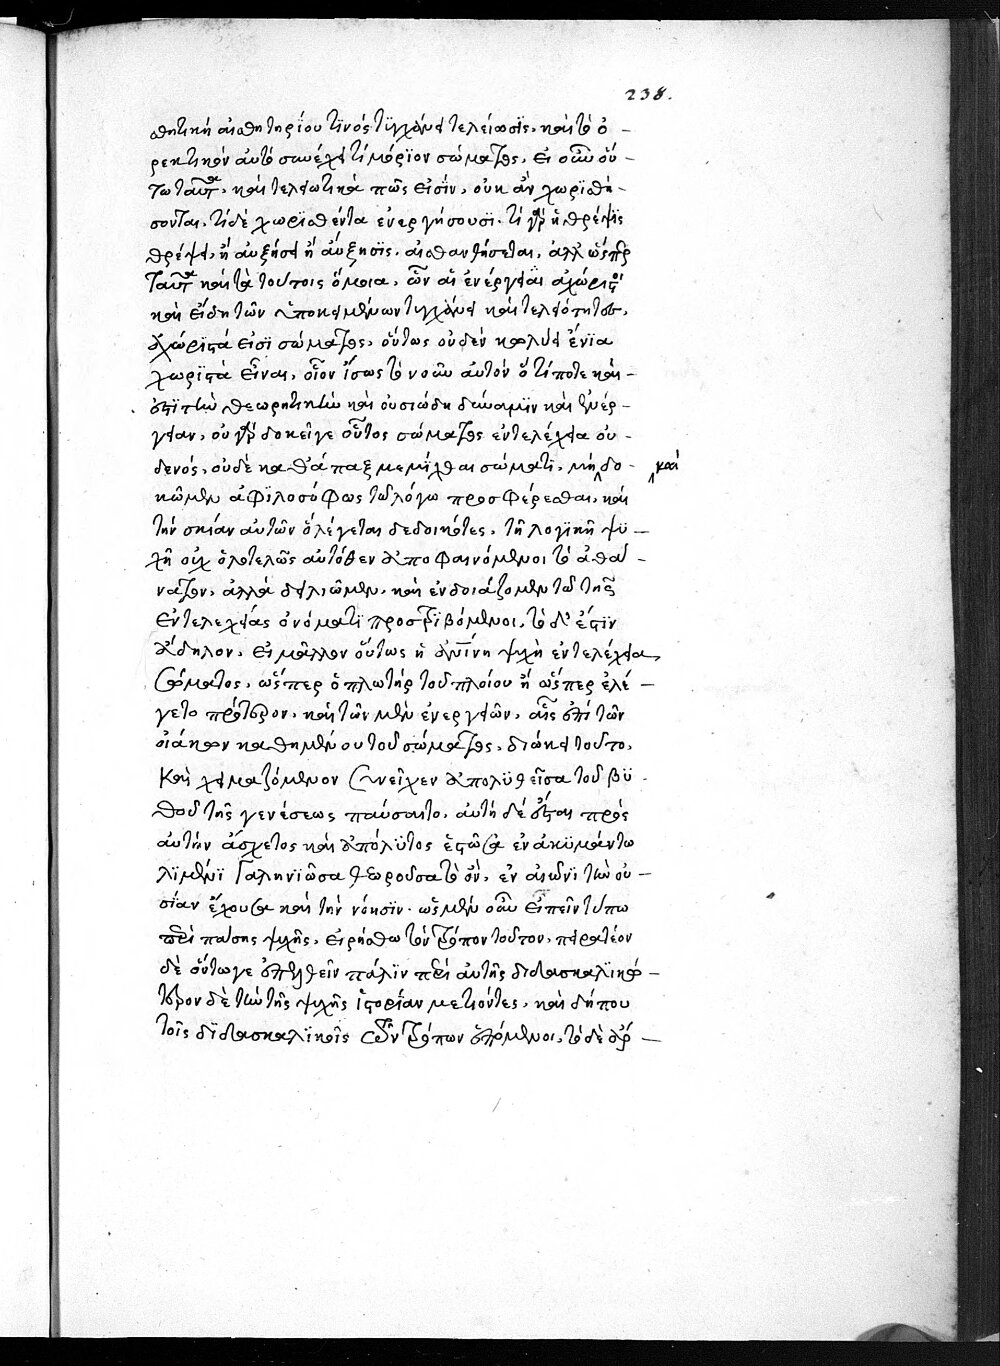 238.
θητικὴ αἰσθητηρίου τινός τυγχάνει τελείωσις, καὶ τὸ ὀ -
ρεκτικὸν αὐτὸ συνέχει τι μόριον σώματος, εἰ οὖν οὕ -
τω ταῦτα, καὶ τελειωτικά πῶς εἰσίν, οὐκ ἂν χωρισθή -
σονται, τί δὲ χωρισθέντα ἐνεργήσουσι. τί γὰρ ἡ θρέψις
θρέψει, ἢ αὐξήσει ἡ αὔξησις, αἰσθανθήσεται, ἀλλ' ὥσπερ
ταῦτα καὶ τὰ τούτοις ὅμοια, ὧν αἱ ἐνέργειαι ἀχώριστοι
καὶ εἴδη τῶν ὑποκειμένων τυγχάνει καὶ τελειότητες,
ἀχώριστά εἰσι σώματος, οὕτως οὐδὲν κωλύει ἔνια
χωριστὰ εἶναι, οἷον ἴσως τὸ νοῦν αὐτὸν ὅτί ποτε καὶ -
ἐπὶ τὴν θεωρητικὴν καὶ οὐσιώδη δύναμιν καὶ ἐνέρ -
γειαν, οὐ γὰρ δοκεῖγε οὗτος σώματος ἐντελέχεια οὐ -
δενός, οὐδὲ καθάπαξ μεμίχθαι σώματι, μὴ δο - καὶ
κῶμεν ἀφιλοσόφως τῶ λόγω προσφέρεσθαι, καὶ
τὴν σκίαν αὐτῶν ὃ λέγεται δεδοικότες, τῇ λογικῇ ψυ -
χῇ οὐχ ὁλοτελῶς αὐτόθεν ἀποφαινόμενοι τὸ ἀθά -
νατον, ἀλλὰ δειλιῶμεν, καὶ ἐνδοιάζομεν τῶ τῆς
ἐντελεχείας ὀνόματι προστριβόμενοι, τὸ δ' ἐστὶν
ἄδηλον, εἰ μᾶλλον οὕτως ἡ ψυχὴ ἐντελέχεια,
σώματος, ὥσπερ ὁ πλωτὴρ τοῦ πλοίου ἢ ὥσπερ ἐλέ -
γετο πρότερον, καὶ τῶν μὲν ἐνεργειῶν, αἷς ἐπὶ τῶν
οἰάκων καθημένου τοῦ σώματος, διώκει τοῦτο,
καὶ χειμαζόμενον συνεῖχεν ἀπολυθεῖσα τοῦ βυ -
θοῦ τῆς γενέσεως παύσαιτο, αὐτὴ δὲ ἔσται πρὸς
αὐτὴν ἄσχετος καὶ ἀπόλυτος ἑστῶσα ἐν ἀκυμάντω
λιμένι γαληνιῶσα θεωροῦσα τὸ ὄν, ἐν αἰῶνι τὴν οὐ -
σίαν ἔχουσα καὶ τὴν νόησιν. ὡς μὲν οὖν εἰπεῖν τύπω
περὶ πάσης ψυχῆς, εἰρήσθω τὸν τρόπον τοῦτον, πειρατέον
δὲ οὕτωγε ἐπελθεῖν πάλιν περὶ αὐτῆς διδασκαλικώ -
τερον δὲ τὴν τῆς ψυχῆς ἱστορίαν μετιόντες, καὶ δήπου
τοῖς διδασκαλικοῖς τῶν τρόπων ἑπόμενοι, τὸ δὲ